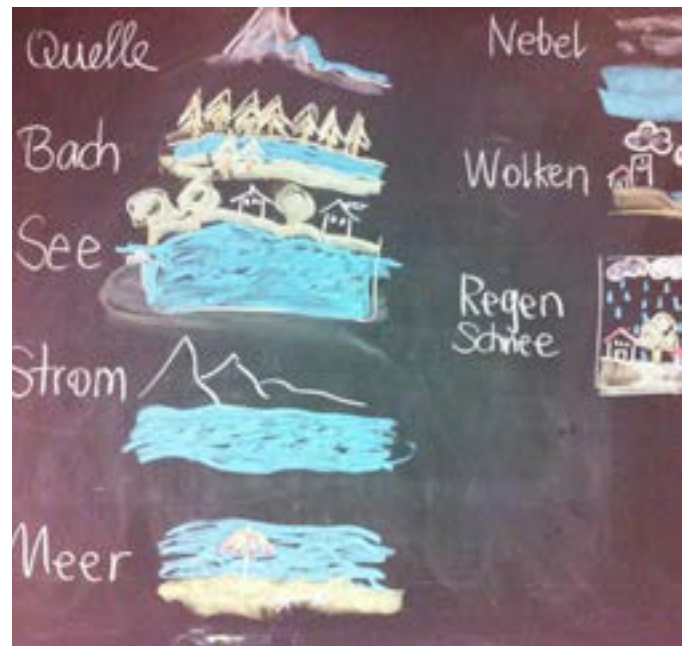 Quelle
Bach
See
Strom
Meer
Nebel
Wolken
Regen
Schnee